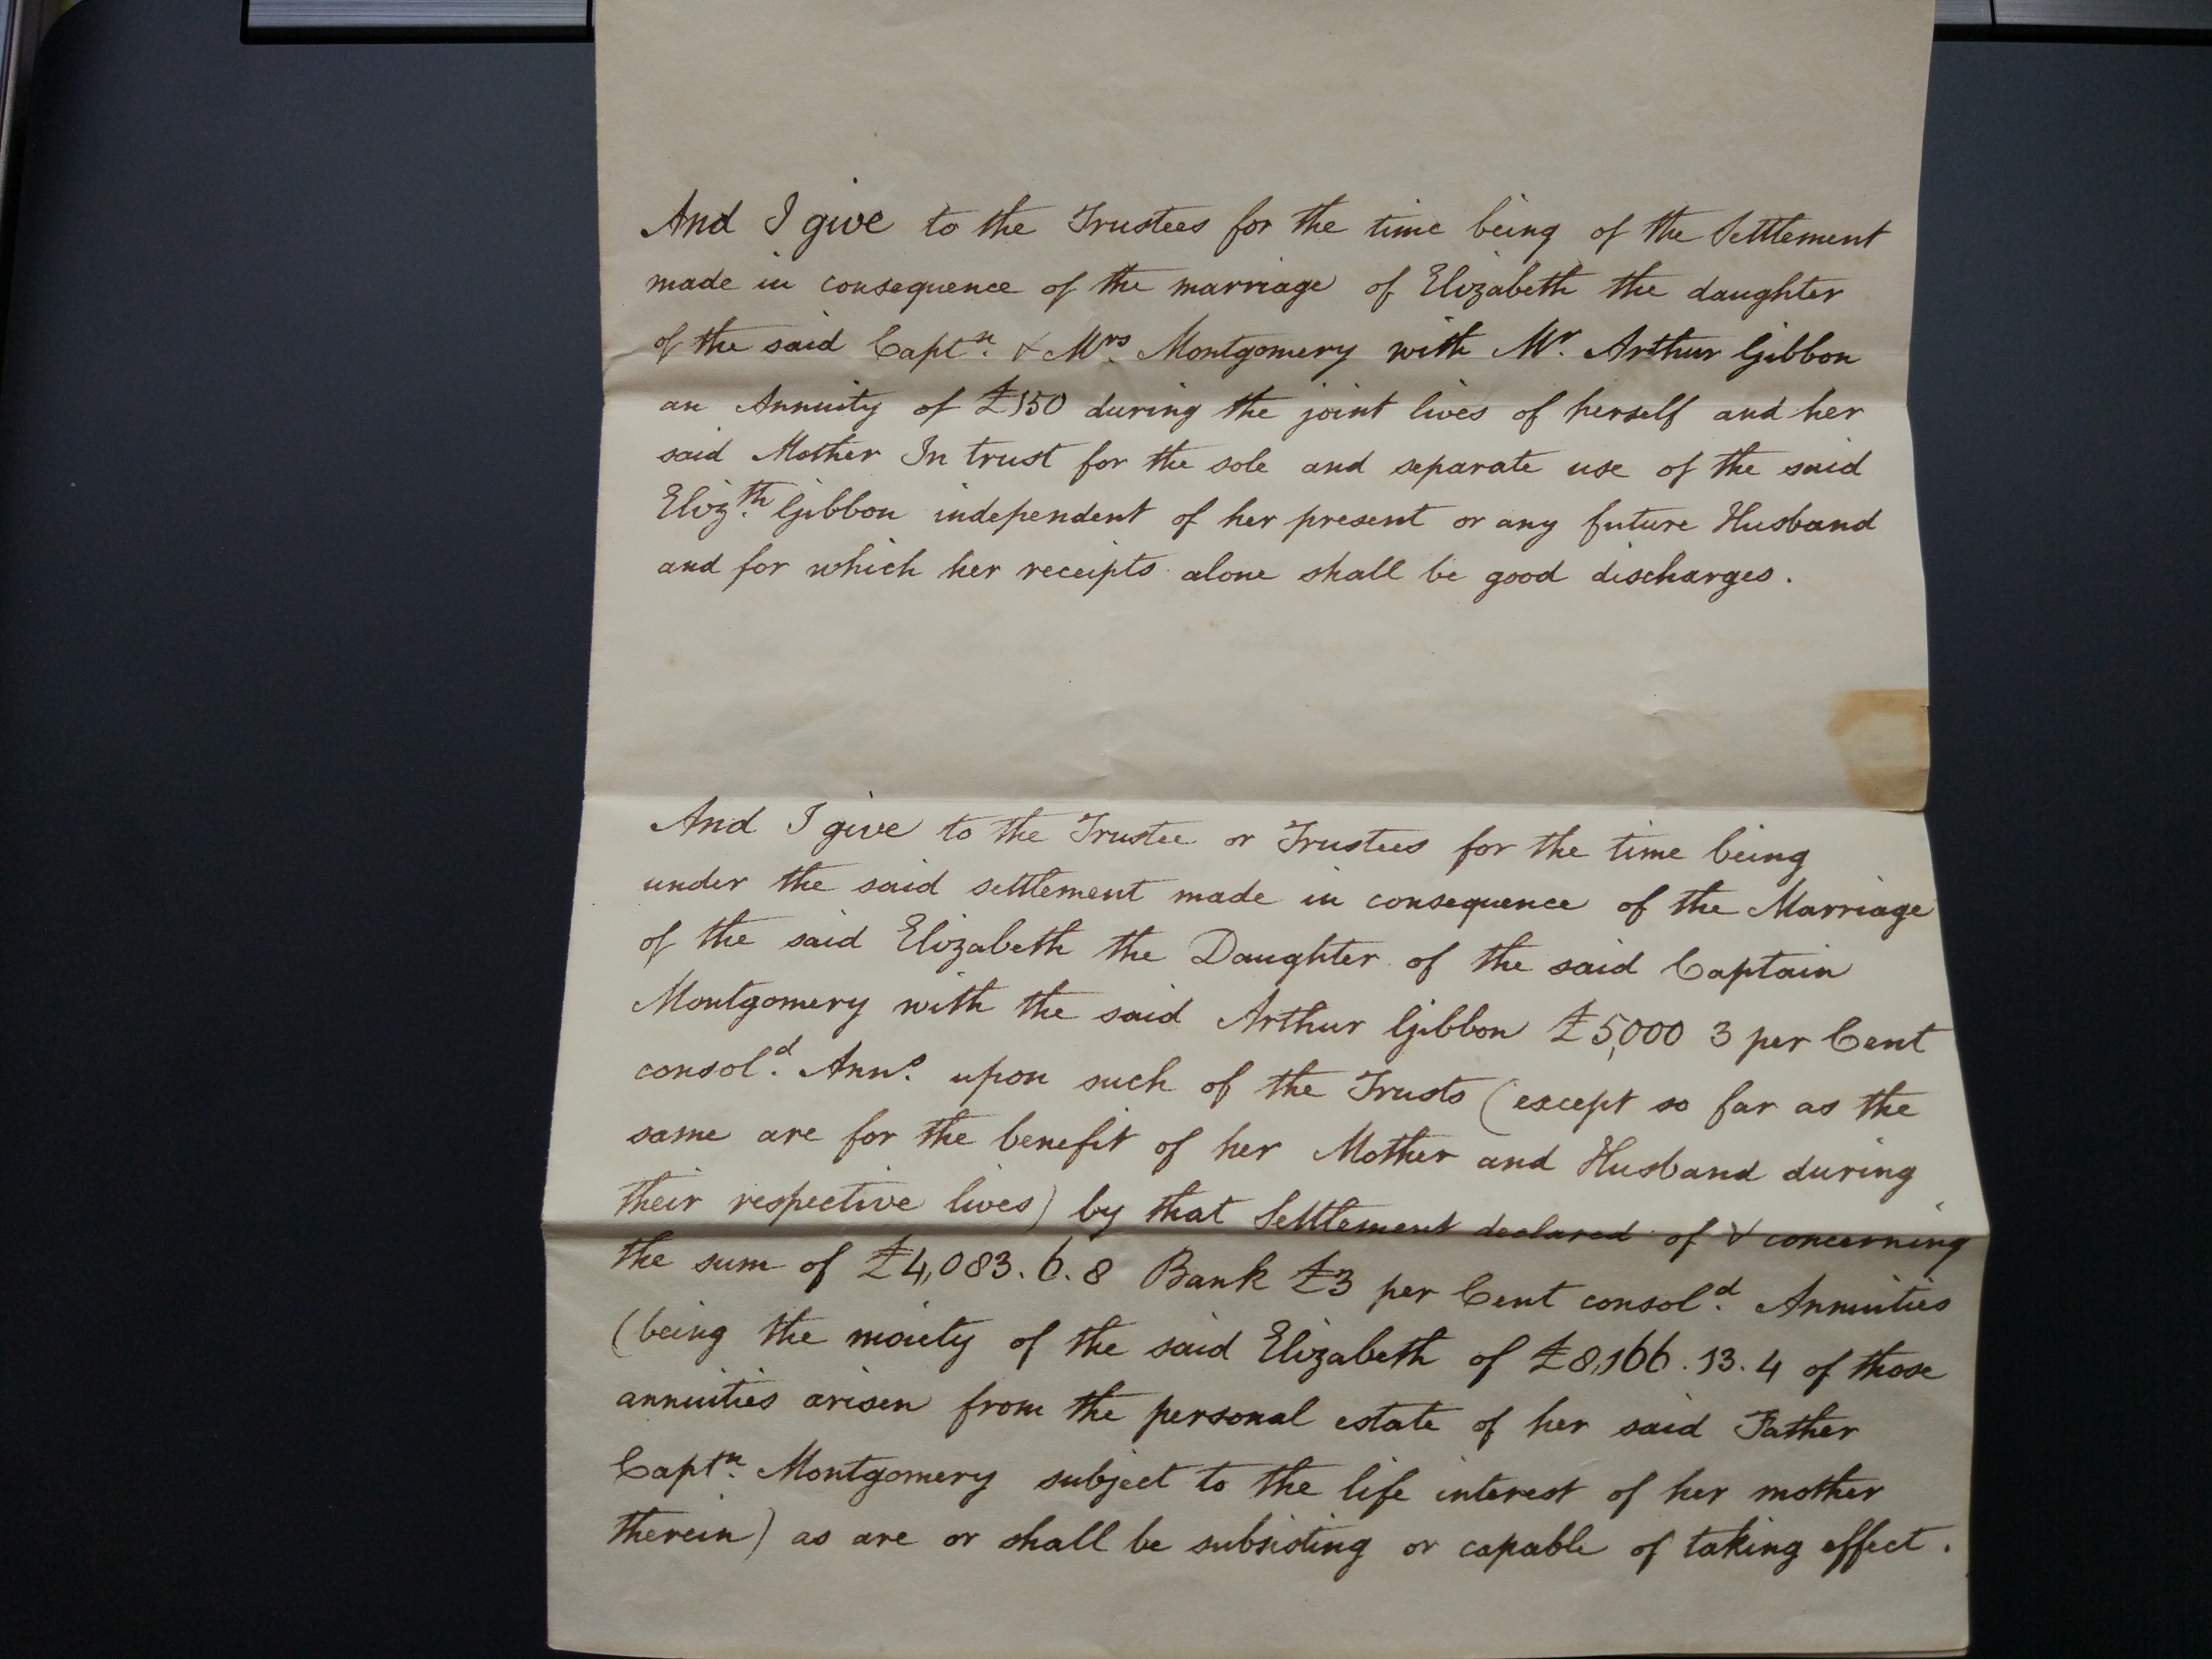 And I give to the Trustees for the time being of the Settlement
made in consequence of the marriage of Elizabeth the daughter
of the said Captn. & Mrs. Montgomery with Mr. Arthur Gibbon
an Annuity of £150 during the joint lives of herself and her
said Mother In trust for the sole and separate use of the said
Elizth. Gibbon independent of her present or any future Husband
and for which her receipts alone shall be good discharges.
And I give to the Trustee or Trustees for the time being
under the said settlement made in consequence of the Marriage
of the said Elizabeth the Daughter of the said Captain
Montgomery with the said Arthur Gibbon £5,000 3 per Cent
consold. Anns. upon such of the Trusts (except so far as the
same are for the benefit of her Mother and Husband during
their respective lives) by that Settlement declared of & concerning
the sum of £4,083.6.8 Bank £3 per Cent consold. Annuities
(being the moiety of the said Elizabeth of £8,166.13.4 of those
annuities arisen from the personal estate of her said Father
Captn. Montgomery subject to the life interest of her mother
therein) as are or shall be subsisting or capable of taking effect.